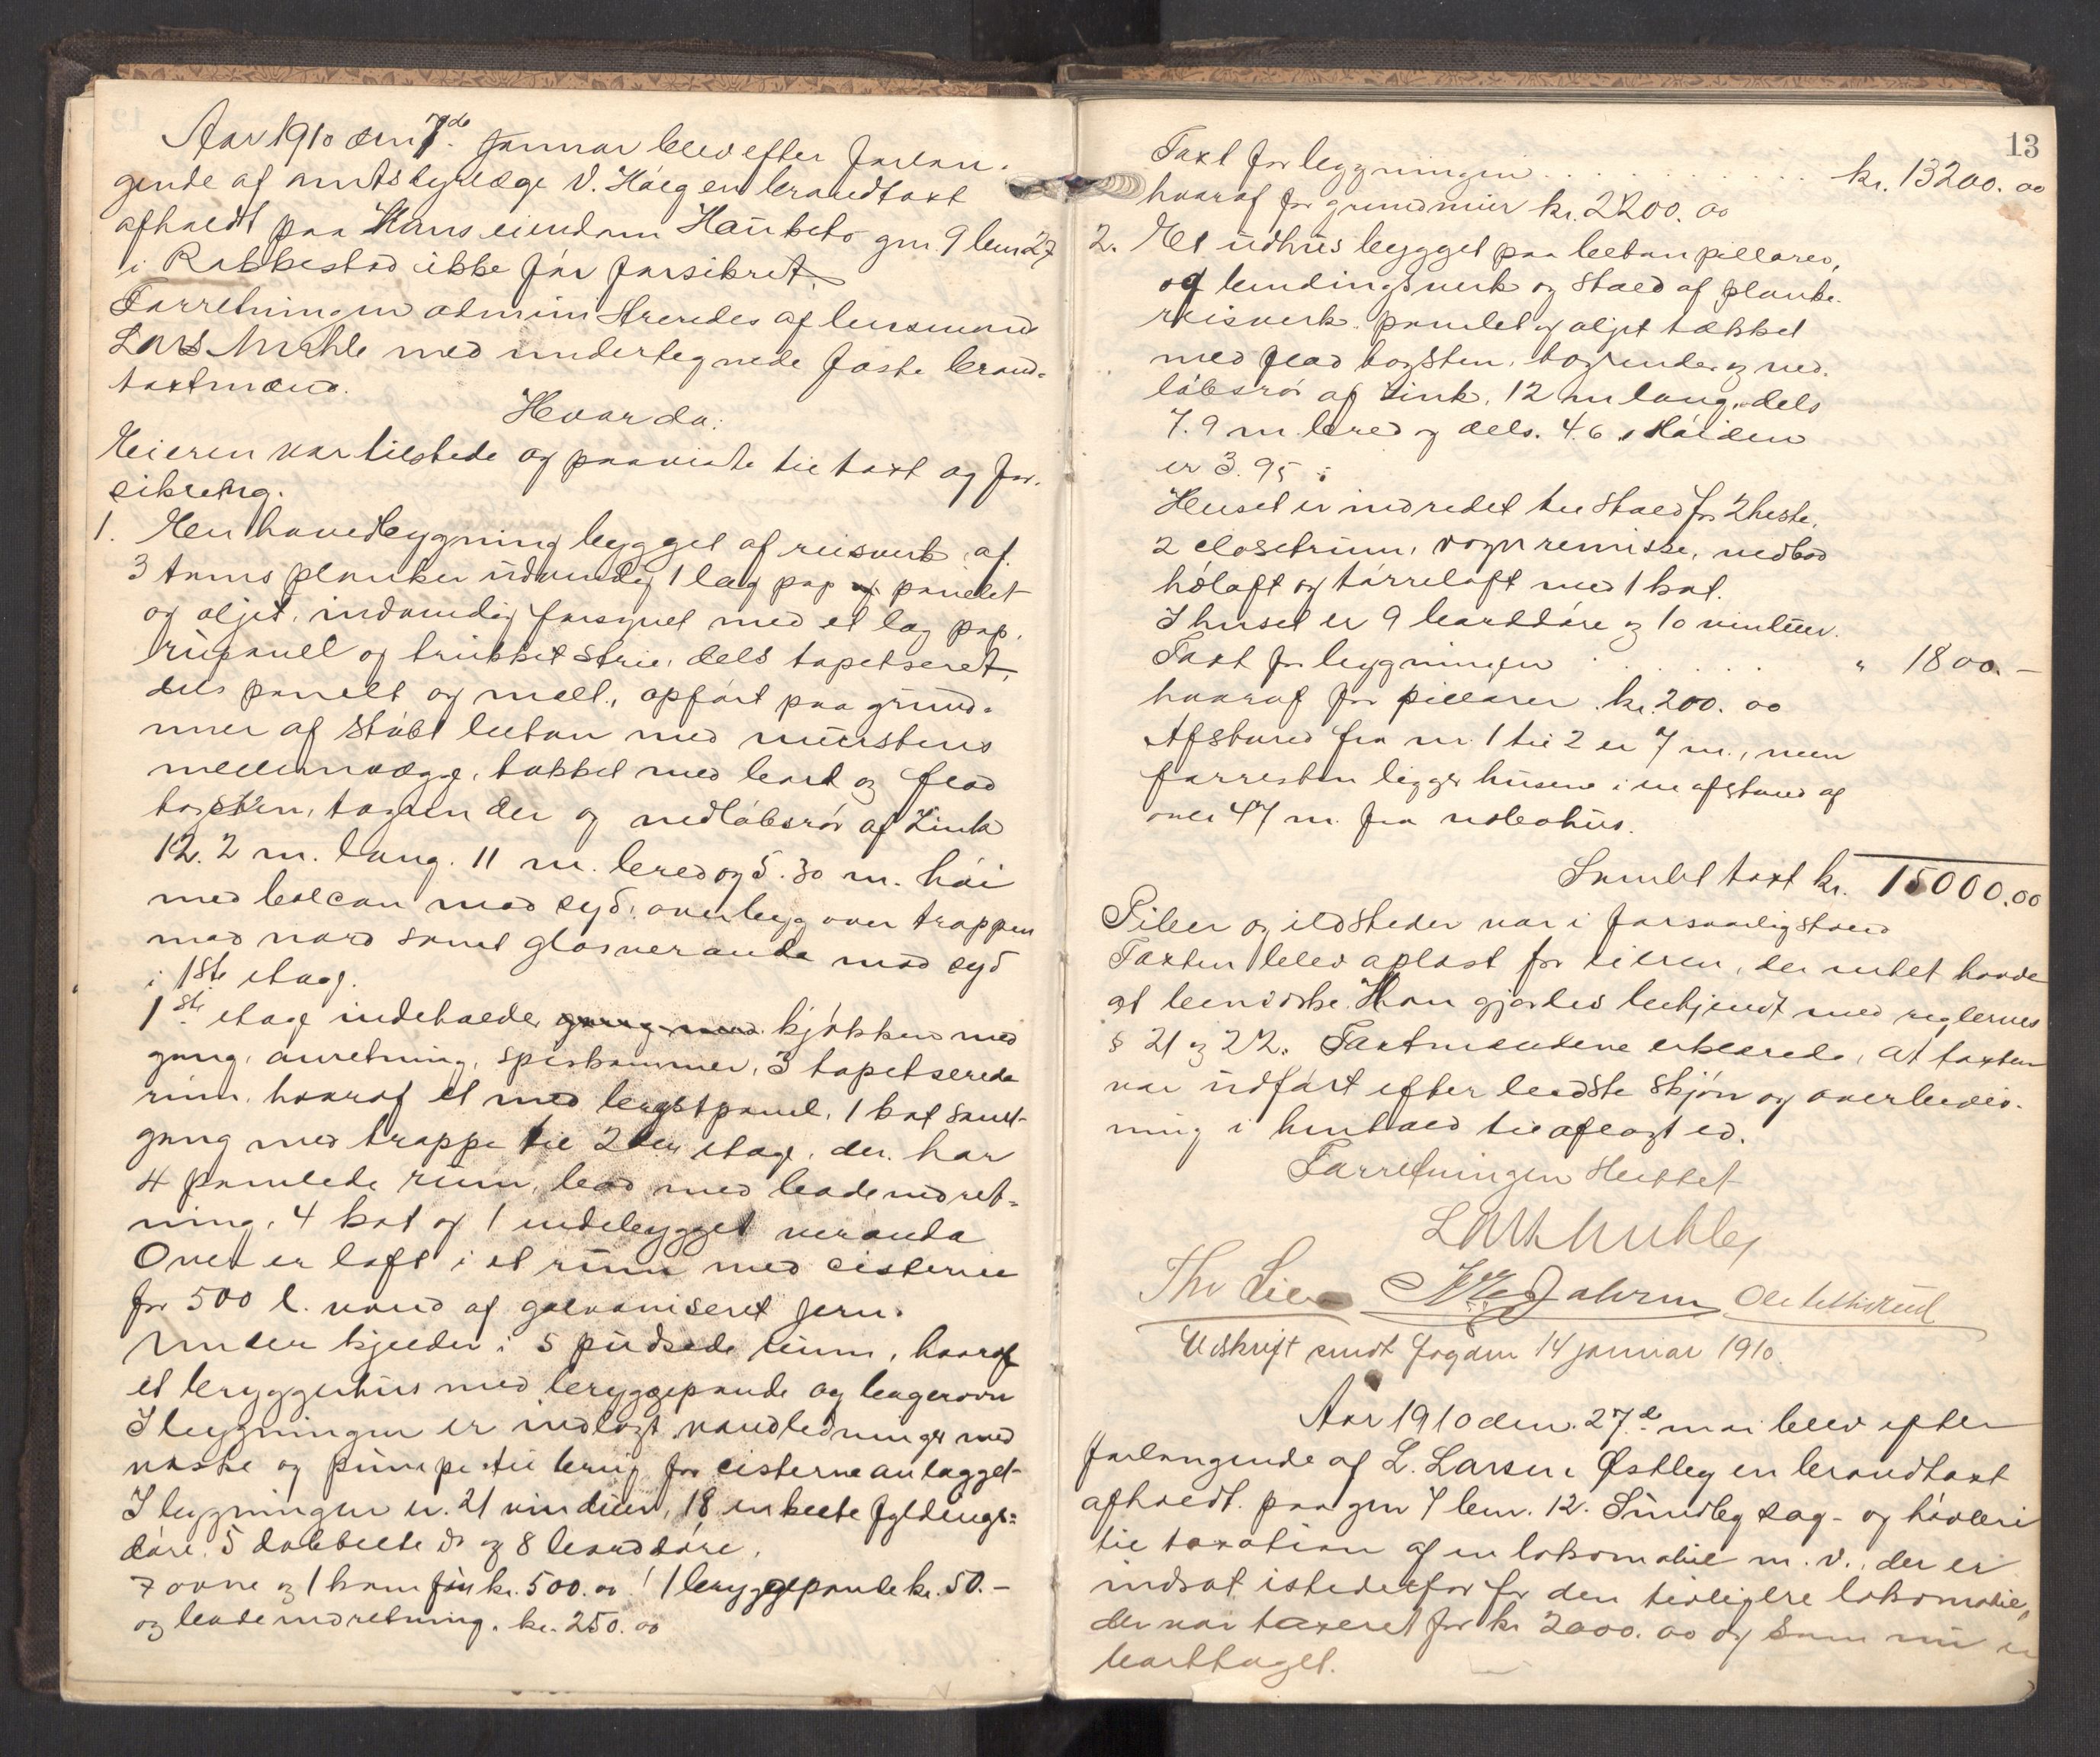 Aar 1910 den 7de januar blev efter forlan-
gende af amtsdyrlæge V. Høeg en brandtaxt
afholdt paa Hans eiendom Haubeto gn. 9 bn. 27
i Rakkestad ikke før forsikret.
Forretningen administreredes af lensmand
Lars Muhle med undertegnede faste brand-
taxtmænd.
Hvorda:
Eieren var tilstede og paaviste til taxt og for-
sikring.
1. En hovedbygning bygget af reisverk af
3 toms planker udvendig 1 lag pap panelt
og oljet, indvendig forsynet med et lag pap,
rupanel og trukket strie, dels tapetseret,
dels panelt og malt, opført paa grund-
mur af støbt beton med murstens
mellemvægge, tækket med bord og flad
tagsten, tagrender og nedløbsrør af Zink
12.2 m. lang. 11 m. bred og 5.30 m. høi
med balcon mod syd, overbyg over trappen
mod nord samt glasveranda mod syd
i 1ste etage.
1ste etage indeholder gang med kjøkken med
gang, anretning, spiskammer, 3 tapetserede
rum, hvoraf et med brystpanel, 1 kot samt
gang med trappe til 2den etage, der har
4 panelede rum, bad med badeindret-
ning, 4 kot og 1 indebygget veranda
Over er loft i et rum med cisterne
for 500 l. vand af galvaniseret jern.
Under kjelder i 5 pudsede rum, hvoraf
et bryggerhus med bryggepande og bagerovn
I bygningen er indlagt vandledninger med
vaske og pumpe til brug for cisterneanlægget
I bygningen er 21 vinduer, 18 enkelte fyldings-
døre, 5 dobbelte do og 8 borddøre.
7 ovne og 1 komfür kr. 500.00 1 bryggepande kr. 50.-
og badeindretning kr. 250.00
13
Taxt for bygningen . . . . . . . . . . . . kr. 13200.00
hvoraf for grundmur kr. 2200.00
2. Et udhus bygget paa beton pillarer,
af bindingsverk og stald af planke-
reisverk panelet og oljet tækket
med flad tagsten, tagrender og ned-
løbsrør af Zink, 12 m lang, dels
7.9 m bred og dels. 4.6, Høiden
er 3.95 :
Huset er indredet til stald for 2 heste,
2 closetrum, vognremisse, vedbod
høloft og tørreloft med 1 kot.
I huset er 9 borddøre og 10 vinduer.
Taxt for bygningen . . . . . . " 1800.-
hvoraf for pillarer kr. 200.00
Afstand fra nr. 1 til 2 er 7 m., men
forresten ligger husene i en afstand af
over 47 m. fra nabohus.
Samlet taxt kr. 15000.00
Piber og ildsteder var i forsvarlig stand
Taxten blev oplæst for eieren, der intet havde
at bemærke. Han gjordes bekjendt med reglernes
§ 21 og 22. Taxtmændene erklærede, at taxten
var udført efter bedste skjøn og overbevis-
ning i henhold til aflagt ed.
Forretningen sluttet
Lars Muhle
Thv Lie
Udskrift sendt fogden 14 januar 1910.
Aar 1910 den 27de mai blev efter
forlangende af L. Larsen Østby en brandtaxt
afholdt paa gn 7 bn. 12. Sundby sag- og høvleri
til taxation af en lokomobil m. v., der er
indsat istedetfor for den tidligere lokomobil,
der var taxeret for kr 2000.00 og som nu er
borttaget.